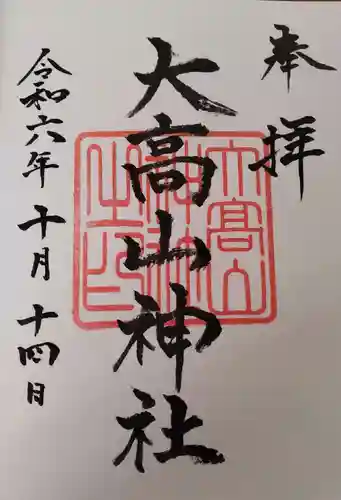 奉拝
大高山神社
大高山神社之印
令和六年十月十四日